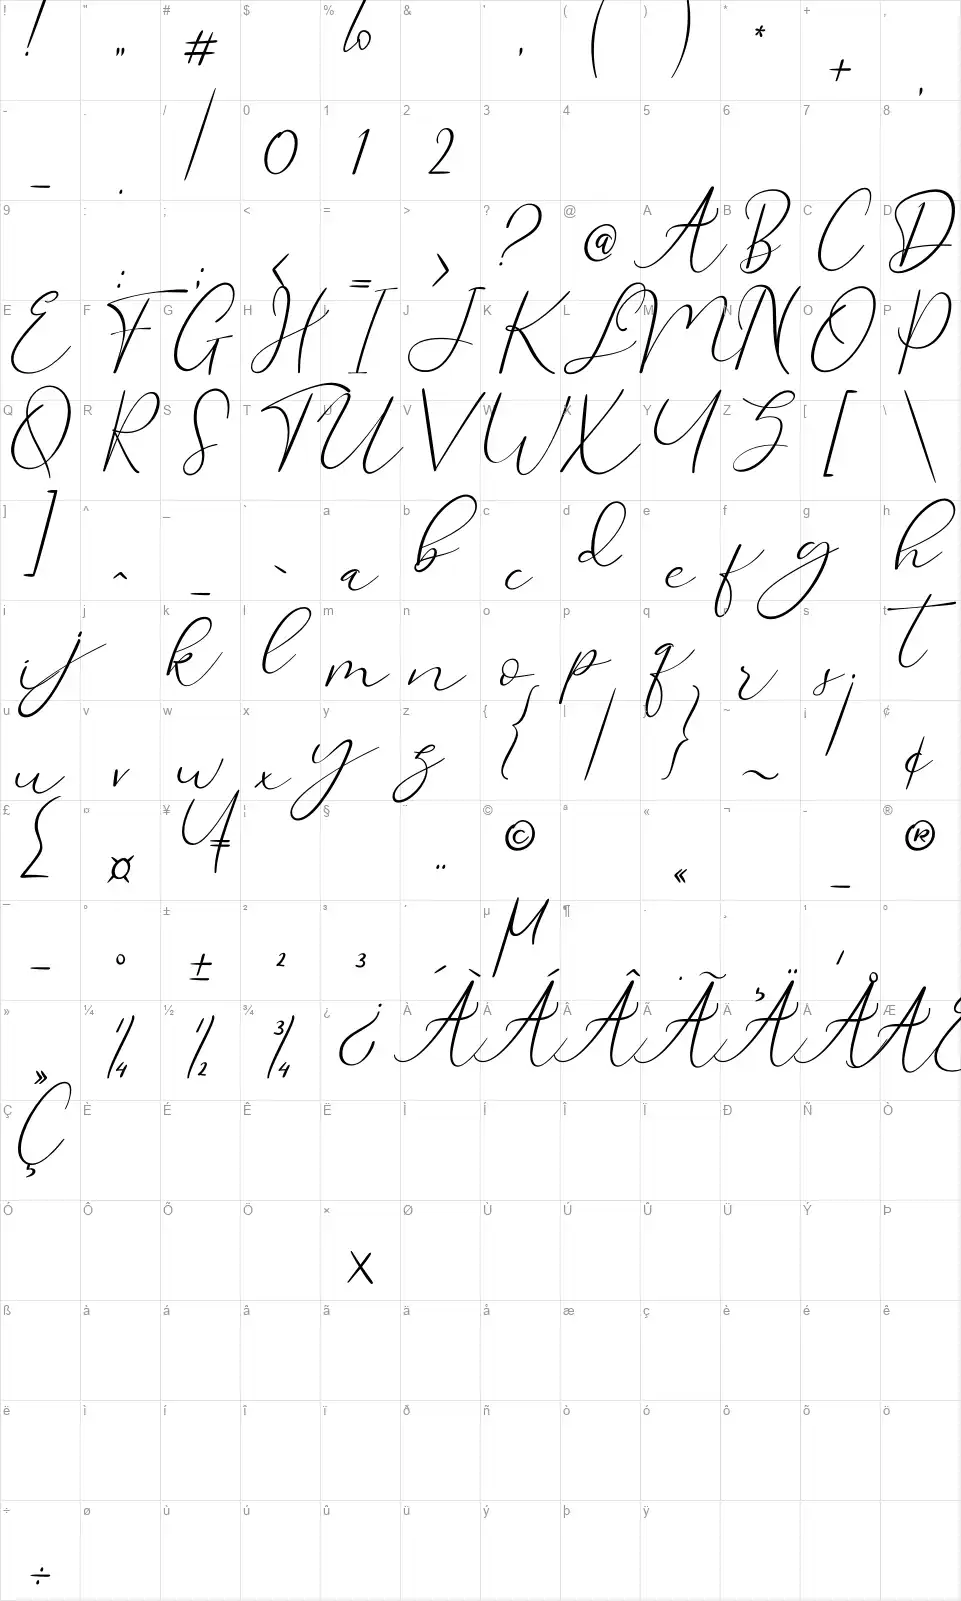 ! " # $ % & ' ( ) * + ,
! " # % ' ( ) * + ,
- . / 0 1 2 3 4 5 6 7 8
- . / 0 1 2
9 : ; < = > ? @ A B C D
: ; < = > ? @ A B C D
E F G H I J K L M N O P
E F G H I J K L M N O P
Q R S T U V W X Y Z [ \
Q R S T U V W X Y Z [ \
] ^ _ ` a b c d e f g h
] ^ _ ` a b c d e f g h
i j k l m n o p q r s t
i j k l m n o p q r s t
u v w x y z { | } ~ ¡ ¢
u v w x y z { | } ~ ¡ ¢
£ ¤ ¥ ¦ § ¨ © ª « ¬ - ®
£ ¤ ¥ ¨ © « - ®
¯ ° ± ² ³ ´ µ ¶ · ¸ ¹ º
¯ ° ± ² ³ ´ µ · ¸ ¹
» ¼ ½ ¾ ¿ À Á Â Ã Ä Å Æ
» ¼ ½ ¾ ¿ À Á Â Ã Ä Å Æ
Ç È É Ê Ë Ì Í Î Ï Ð Ñ Ò
Ç
Ó Ô Õ Ö × Ø Ù Ú Û Ü Ý Þ
×
ß à á â ã ä å æ ç è é ê
ë ì í î ï ð ñ ò ó ô õ ö
÷ ø ù ú û ü ý þ ÿ
÷